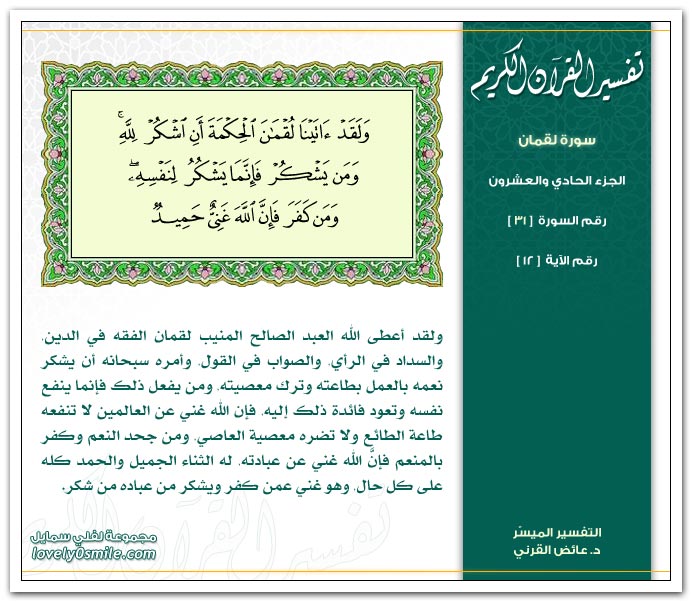 تفسير القرآن الكريم
سورة لقمان
الجزء الحادي والعشرون
رقم السورة [ ٣١ ]
رقم الآية [ ١٢ ]
وَلَقَدْ ءَاتَيْنَا لُقْمَٰنَ ٱلْحِكْمَةَ أَنِ ٱشْكُرْ لِلَّهِ ۚ
وَمَن يَشْكُرْ فَإِنَّمَا يَشْكُرُ لِنَفْسِهِۦ ۖ
وَمَن كَفَرَ فَإِنَّ ٱللَّهَ غَنِىٌّ حَمِيدٌ
ولقد أعطى الله العبد الصالح المنيب لقمان الفقه في الدين،
والسداد في الرأي، والصواب في القول، وأمره سبحانه أن يشكر
نعمه بالعمل بطاعته وترك معصيته، ومن يفعل ذلك فإنما ينفع
نفسه وتعود فائدة ذلك إليه، فإن الله غني عن العالمين لا تنفعه
طاعة الطائع ولا تضره معصية العاصي، ومن جحد النعم وكفر
بالمنعم فإنَّ الله غني عن عبادته، له الثناء الجميل والحمد كله
على كل حال، وهو غني عمن كفر ويشكر من عباده من شكر.
تفسير القرآن الكريم
مجموعة لفلي سمايل
lovely0smile.com
التفسير الميسّر
د. عائض القرني